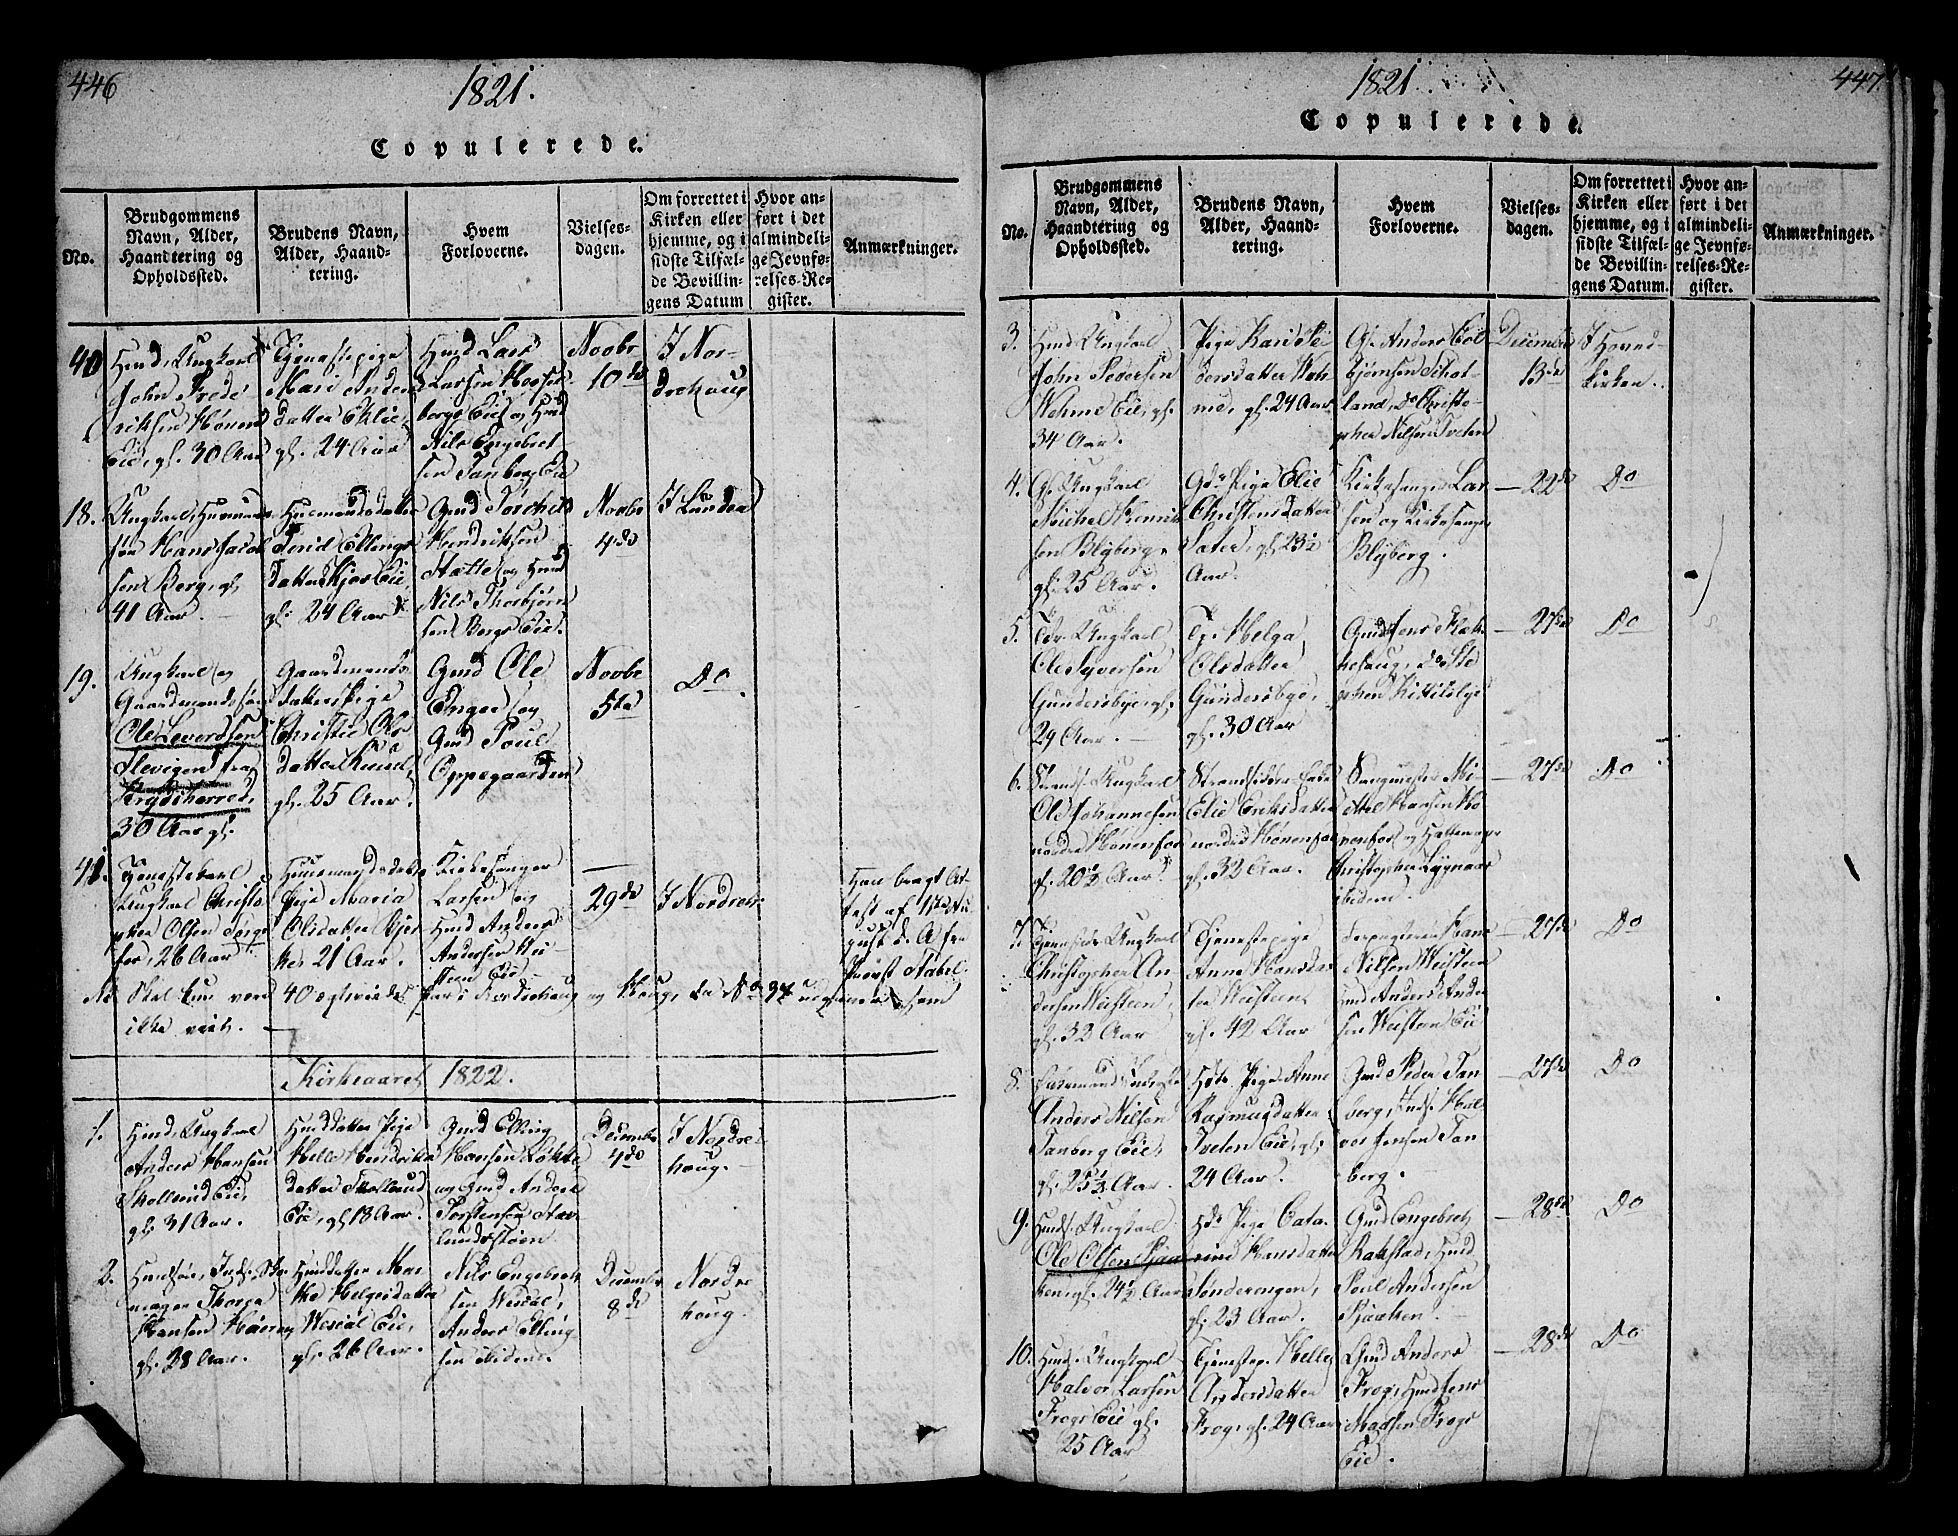 446
1821.
Copulerede.
No.
Brudgommens
Navn, Alder,
Haandtering og
Opholdssted.
Brudens Navn,
Alder, Haand-
tering.
Hvem
Forloverne.
Vielses-
dagen.
Om forrettet i
Kirken eller
hjemme, og i
sidste Tilfæl-
de Bevillin-
gens Datum
Hvor an-
ført i det
almindeli-
ge Jevnfø-
relses-Re-
gister.
Anmærkninger.
40
Hmd, Ungkarl
John Frede
riksen Hønen
Eie, gl. 30 Aar
Tjenestepige
Mari Anders
datter
gl. 24 Aar
Hmd Lars
Larsen
bergs Eie og Hmd
Nils Engebret
sen Tanberg Eie
Novbr
10de
I Nor-
drehoug
18.
Ungkarl, Huusmands
søn Hans Jacob
sen Berg, gl.
41 Aar.
Huusmandsdatter
Torid Ellings
datter Kjos Eie
gl. 24 Aar
Gmd Torchild
Hendriksen
og Hmd
Nils Thorbjørn
sen Bergs Eie.
Novbr
4de
I Lunder
19.
Ungkarl og
Gaardmandssøn
Ole Leverdsen
Slevigen fra
30 Aar gl.
Gaardmands
datter Pige
Christie Ols
datter
gl. 25 Aar.
Gmd Ole
Enger og
Gmd Poul
Oppegaarden
Novbr
5te
Do
41.
Tjenestekarl
Ungkarl Christo
pher Olsen
26 Aar
Huusmandsdatter
Pige Maria
Olsdatter
21 Aar.
Kirkesanger
Larsen og
Hmd Anders
Andersen
Eie
—
29de
I Nordreh:
Har bragt At-
test af 11te Au-
gust d. A. fra
Provst Stabel.
Skal kun være 40 ægteviede Par i Nordrehoug og Houg, da No 37 udgaaer som
ikke viet.
Kirkeaaret 1822.
1.
Hmd, Ungkarl
Anders Hansen
Skollerud Eie,
gl. 31 Aar.
Hmddatter Pige
Helle Hendriks
datter Skollerud
Eie, gl. 18 Aar.
Gmd Elling
Hansen Løkke
og Gmd Anders
Torstensen
Decembr
4de
I Nordre
houg.
2.
Thorger
Hansen
gl. 28 Aar.
Hmddatter Mar
the Helgesdatter
Eie,
gl. 26 Aar.
Nils Engebret
sen
Anders Elling
sen ibidem.
Decembr
8de
Nordre
houg.
1821
447.
Copulerede.
No.
Brudgommens
Navn, Alder,
Haandtering og
Opholdssted.
Brudens Navn,
Alder, Haand-
tering.
Hvem
Forloverne.
Vielses-
dagen.
Om forrettet i
Kirken eller
hjemme, og i
sidste Tilfæl-
de Bevillin-
gens Datum.
Hvor an-
ført i det
almindeli-
ge Jevnfø-
relses-Re-
gister.
Anmærkninger.
3.
Hmd Ungkarl
John Pedersen
Wehme Eie, gl.
34 Aar.
Pige Kari Pe
dersdatter Weh
me, gl. 24 Aar
Anders Col
bjørnsen Schol
land, do Christo
pher Nilsen Tveten
December
13de
I Hoved
Kirken.
4.
Ungkarl
Michel Henrik
sen Blyberg,
gl. 25 Aar.
Pige Elie
Christensdatter
gl. 23½
Aar.
Kirkesanger Lar
sen og Kirkesanger
Blyberg.
— 22de
Do
5.
Ungkarl
Ole Syversen
Gundersbye, gl.
29 Aar.
Helga
Olsdatter
Gundersbye,
gl. 30 Aar
Gmd Jens
do Ste
phen
— 27de
Do
6.
Ungkarl
Ole Johannesen
nordre Hønenfos
gl. 20½ Aar.
Strandsidder
Elie Eriksdatter
nordre Hønenfos
gl. 32 Aar.
Mi-
chel Hansen Hø
nenfos og Hattemager
Christopher Lygnaas
ibidem.
— 27de
Do
7.
Ungkarl
Christopher An
dersen Weisteen,
gl. 32 Aar.
Tjenestepige
Anne Hansdat
ter Weisteen,
gl. 42 Aar
Hans
Nilsen Weisteen
Hmd Anders Ander
sen Weisteen Eie
— 27de
Do
8.
Anders Nilsen
Tanberg Eie,
gl. 25½ Aar.
Pige Anne
Rasmusdatter
Tveten Eie, gl.
24 Aar.
Gmd Peder Tan
berg, Inds. Hal
vor Jensen Tan
berg.
— 27de
Do
9.
Hmds. Ungkarl
Ole Olsen Kjaa
ken, gl. 24½ Aar
Pige Catha
rine Hansdatter
Sønderengen,
gl. 23 Aar.
Gmd Engebret
Rakstad, Hmd
Poul Andersen
Kjaaken.
— 28de
Do
10.
Hmds. Ungkarl
Halvor Larsen
Frogs Eie gl.
25 Aar
Tjenestep. Helle
Andersdatter
Frog, gl. 24 Aar
Gmd Anders
Frog, Hmd Jens
Madsen Frogs
Eie.
— 28de
Do